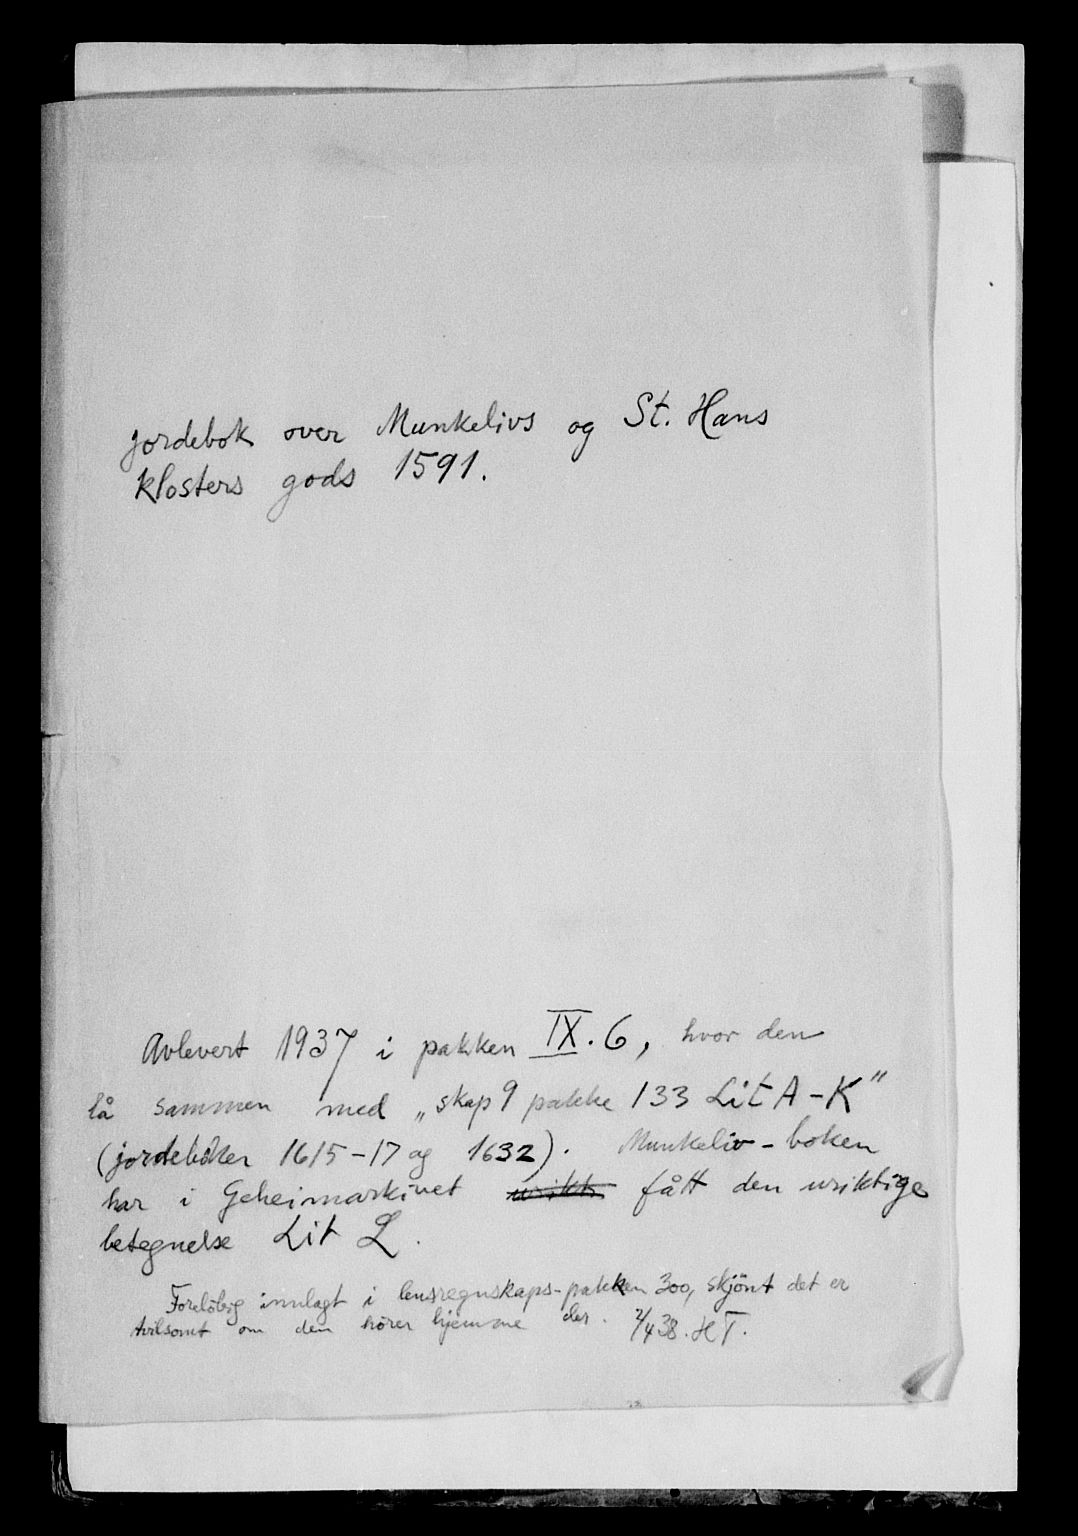 jordebok over Munkelivs og St. Hans
klosters gods 1591.
Avlevert 1937 i pakken IX. 6, hvor den
lå sammen med „skap 9 pakke 133 Lit A-K"
(jordebøker 1615-17 og 1632). Munkeliv-boken
har i Geheimarkivet urikt fått den uriktige
betegnelse Lit L.
Foreløbig innlagt i lensregnskaps-pakken 300, skjönt det er
tvilsomt om den hører hjemme der. 2/4 38. HT.